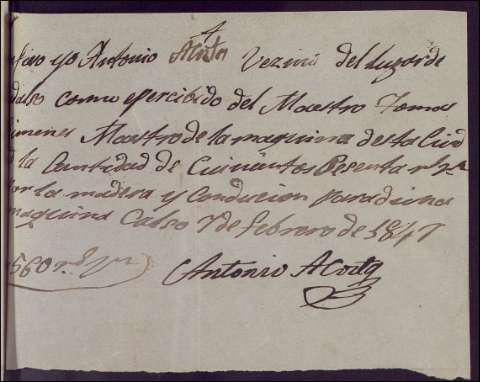 yo Antonio Acosta Vezino del lugar de
como e rrecivido del Maestro Tomas
Maestro de la maquina desta Ciud
la Cantidad de Quinientos Sesenta
la madera y Conducion para dicha
maquina Calso 7 de febrero de 1847
560 r.s
Antonio Acosta